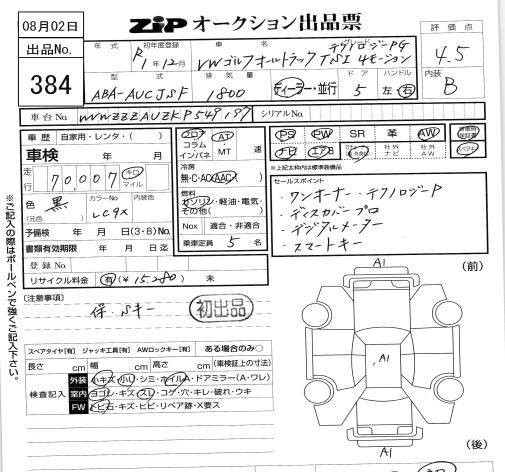 08月02日
ZiPオークション出品票
出品No.
384
年式 初年度登録 車名 グレード
R1年12月 VWゴルフオールトラック テクノロジーPG TSI 4モーション
評価点
4.5
内装
B
型式 排気量 ドア ハンドル
ABA-AUCJSF 1800 ディーラー・並行 5 左・右
車台No. WVWZZZAUZKP549197 シリアルNo.
車歴 自家用・レンタ・( )
車検 年 月
走行 70,007 キロ マイル
色 黒 (元色) カラーNo. LC9X 内装色
予備検 年 月 日(3・8)No.
書類有効期限 年 月 日迄
登録No.
リサイクル料金 有(¥15,280) 未
フロア コラム インパネ AT MT 速
冷房
無・C・AC(AAC)
燃料
ガソリン・軽油・電気・その他( )
Nox 適合・非適合
乗車定員 5 名
PS PW SR 革 AW
ナビ エアB 社外ナビ 社外AW
※上記太枠内は標準装備品
セールスポイント
・ワンオーナー・テクノロジーP
・ディスカバープロ
・デジタルメーター
・スマートキー
※ご記入の際はボールペンで強くご記入下さい。
[注意事項]
保.Sキー
初出品
スペアタイヤ[有] ジャッキ工具[有] AWロックキー[有] ある場合のみ○
長さ cm 幅 cm 高さ cm (車検証上の寸法)
検査記入
外装 小キズ・小U・シミ・ホイルA・ドアミラー(A・ワレ)
室内 ヨゴレ・キズ・スレ・コゲ・穴・キレ・破れ・ウキ
FW トビ石・キズ・ヒビ・リペア跡・X要ス
A1
(前)
A1
A1
(後)